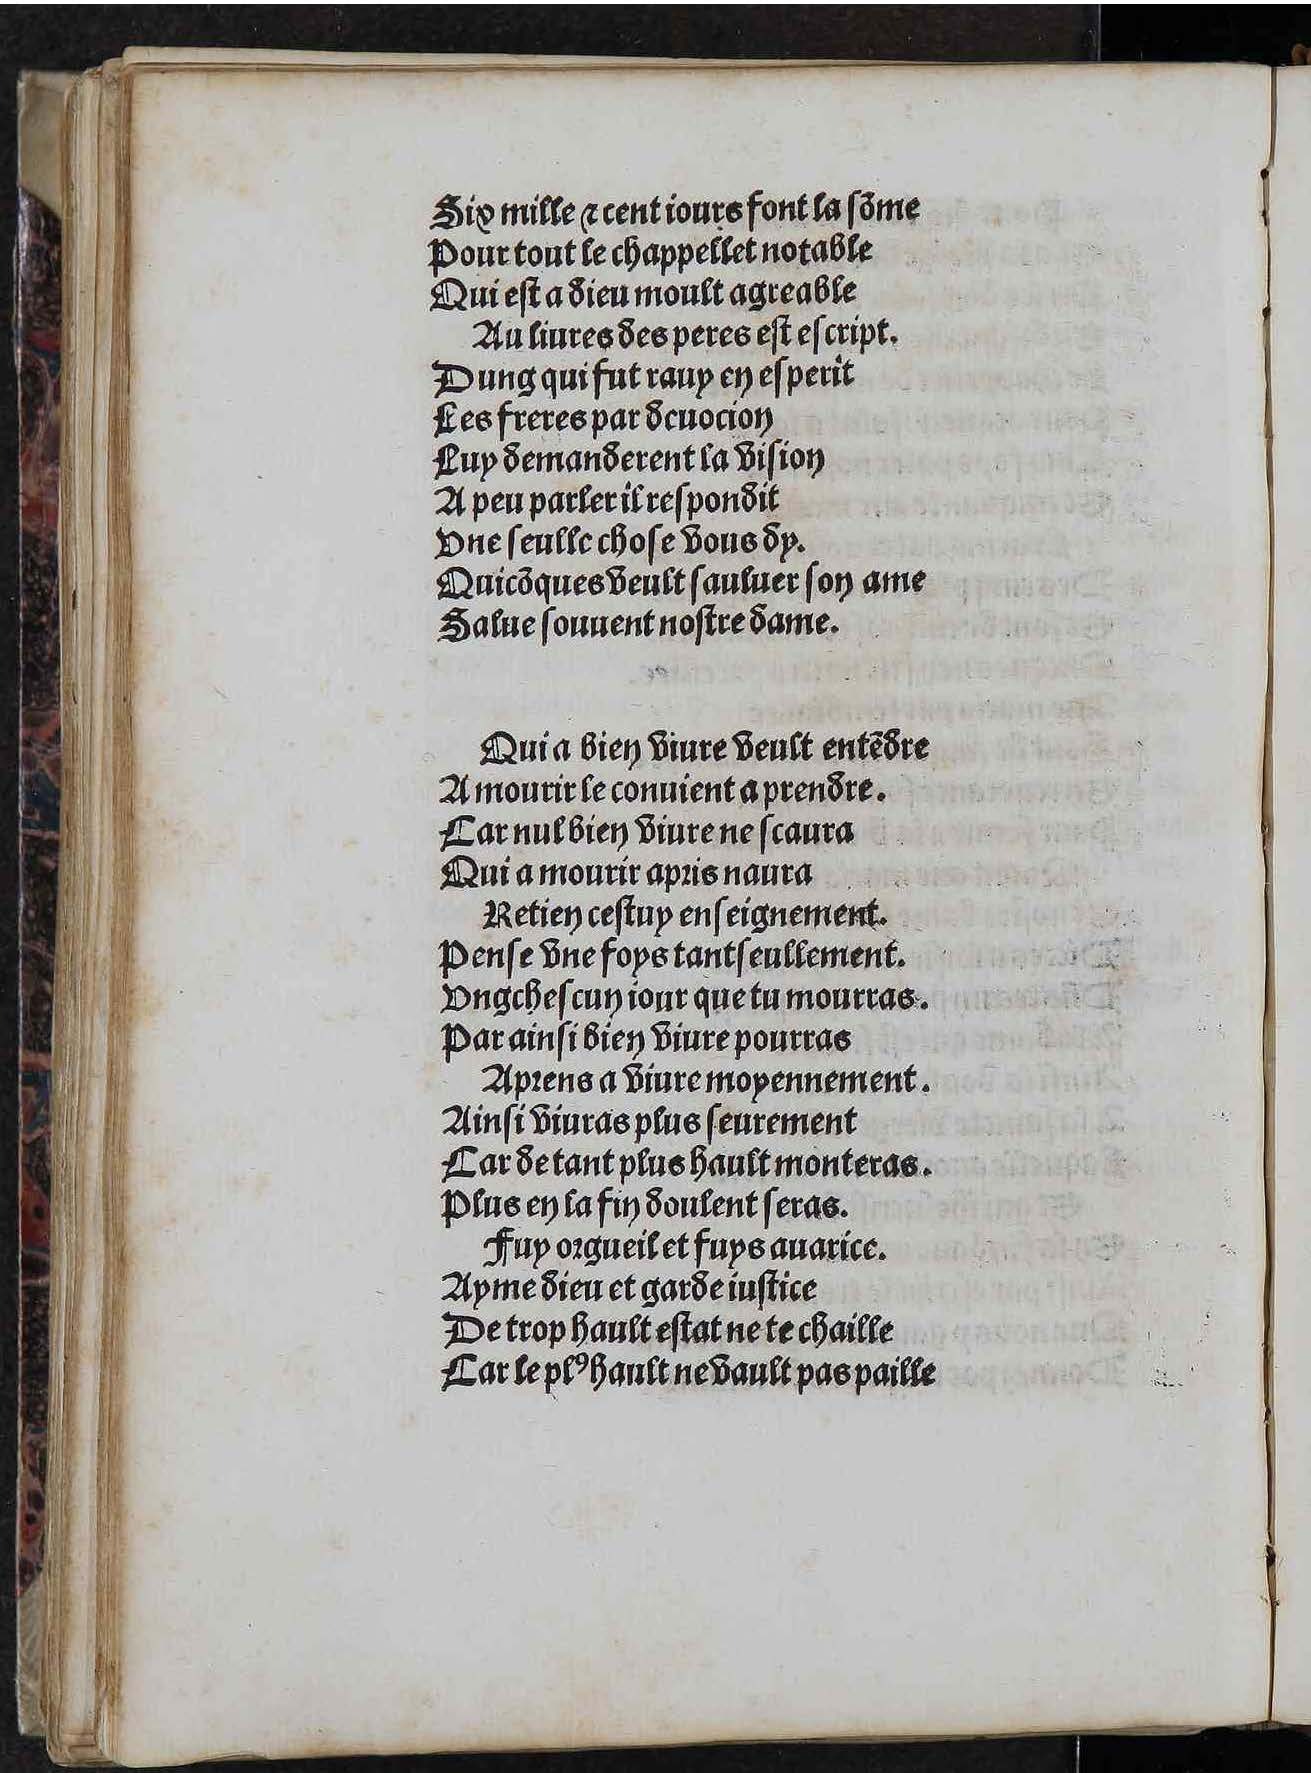 Six mille ⁊ cent iours font la sõme
Pour tout le chappellet notable
Qui est a dieu moult agreable
Au liures des peres est escript.
Dung qui fut rauy en esperit
Les freres par deuocion
Luy demanderent la vision
A peu parler il respondit
Vne seulle chose vous dy.
Quicõques veult sauluer son ame
Salue souuent nostre dame.
Qui a bien viure veult entẽdre
A mourir le conuient aprendre.
Car nul bien viure ne scaura
Qui a mourir apris naura
Retien cestuy enseignement.
Pense vne foys tantseullement.
Vngchescun iour que tu mourras.
Par ainsi bien viure pourras
Aprens a viure moyennement.
Ainsi viuras plus seurement
Car de tant plus hault monteras.
Plus en la fin doulent seras.
Fuy orgueil et fuys auarice.
Ayme dieu et garde iustice
De trop hault estat ne te chaille
Car le plꝰ hault ne vault pas paille